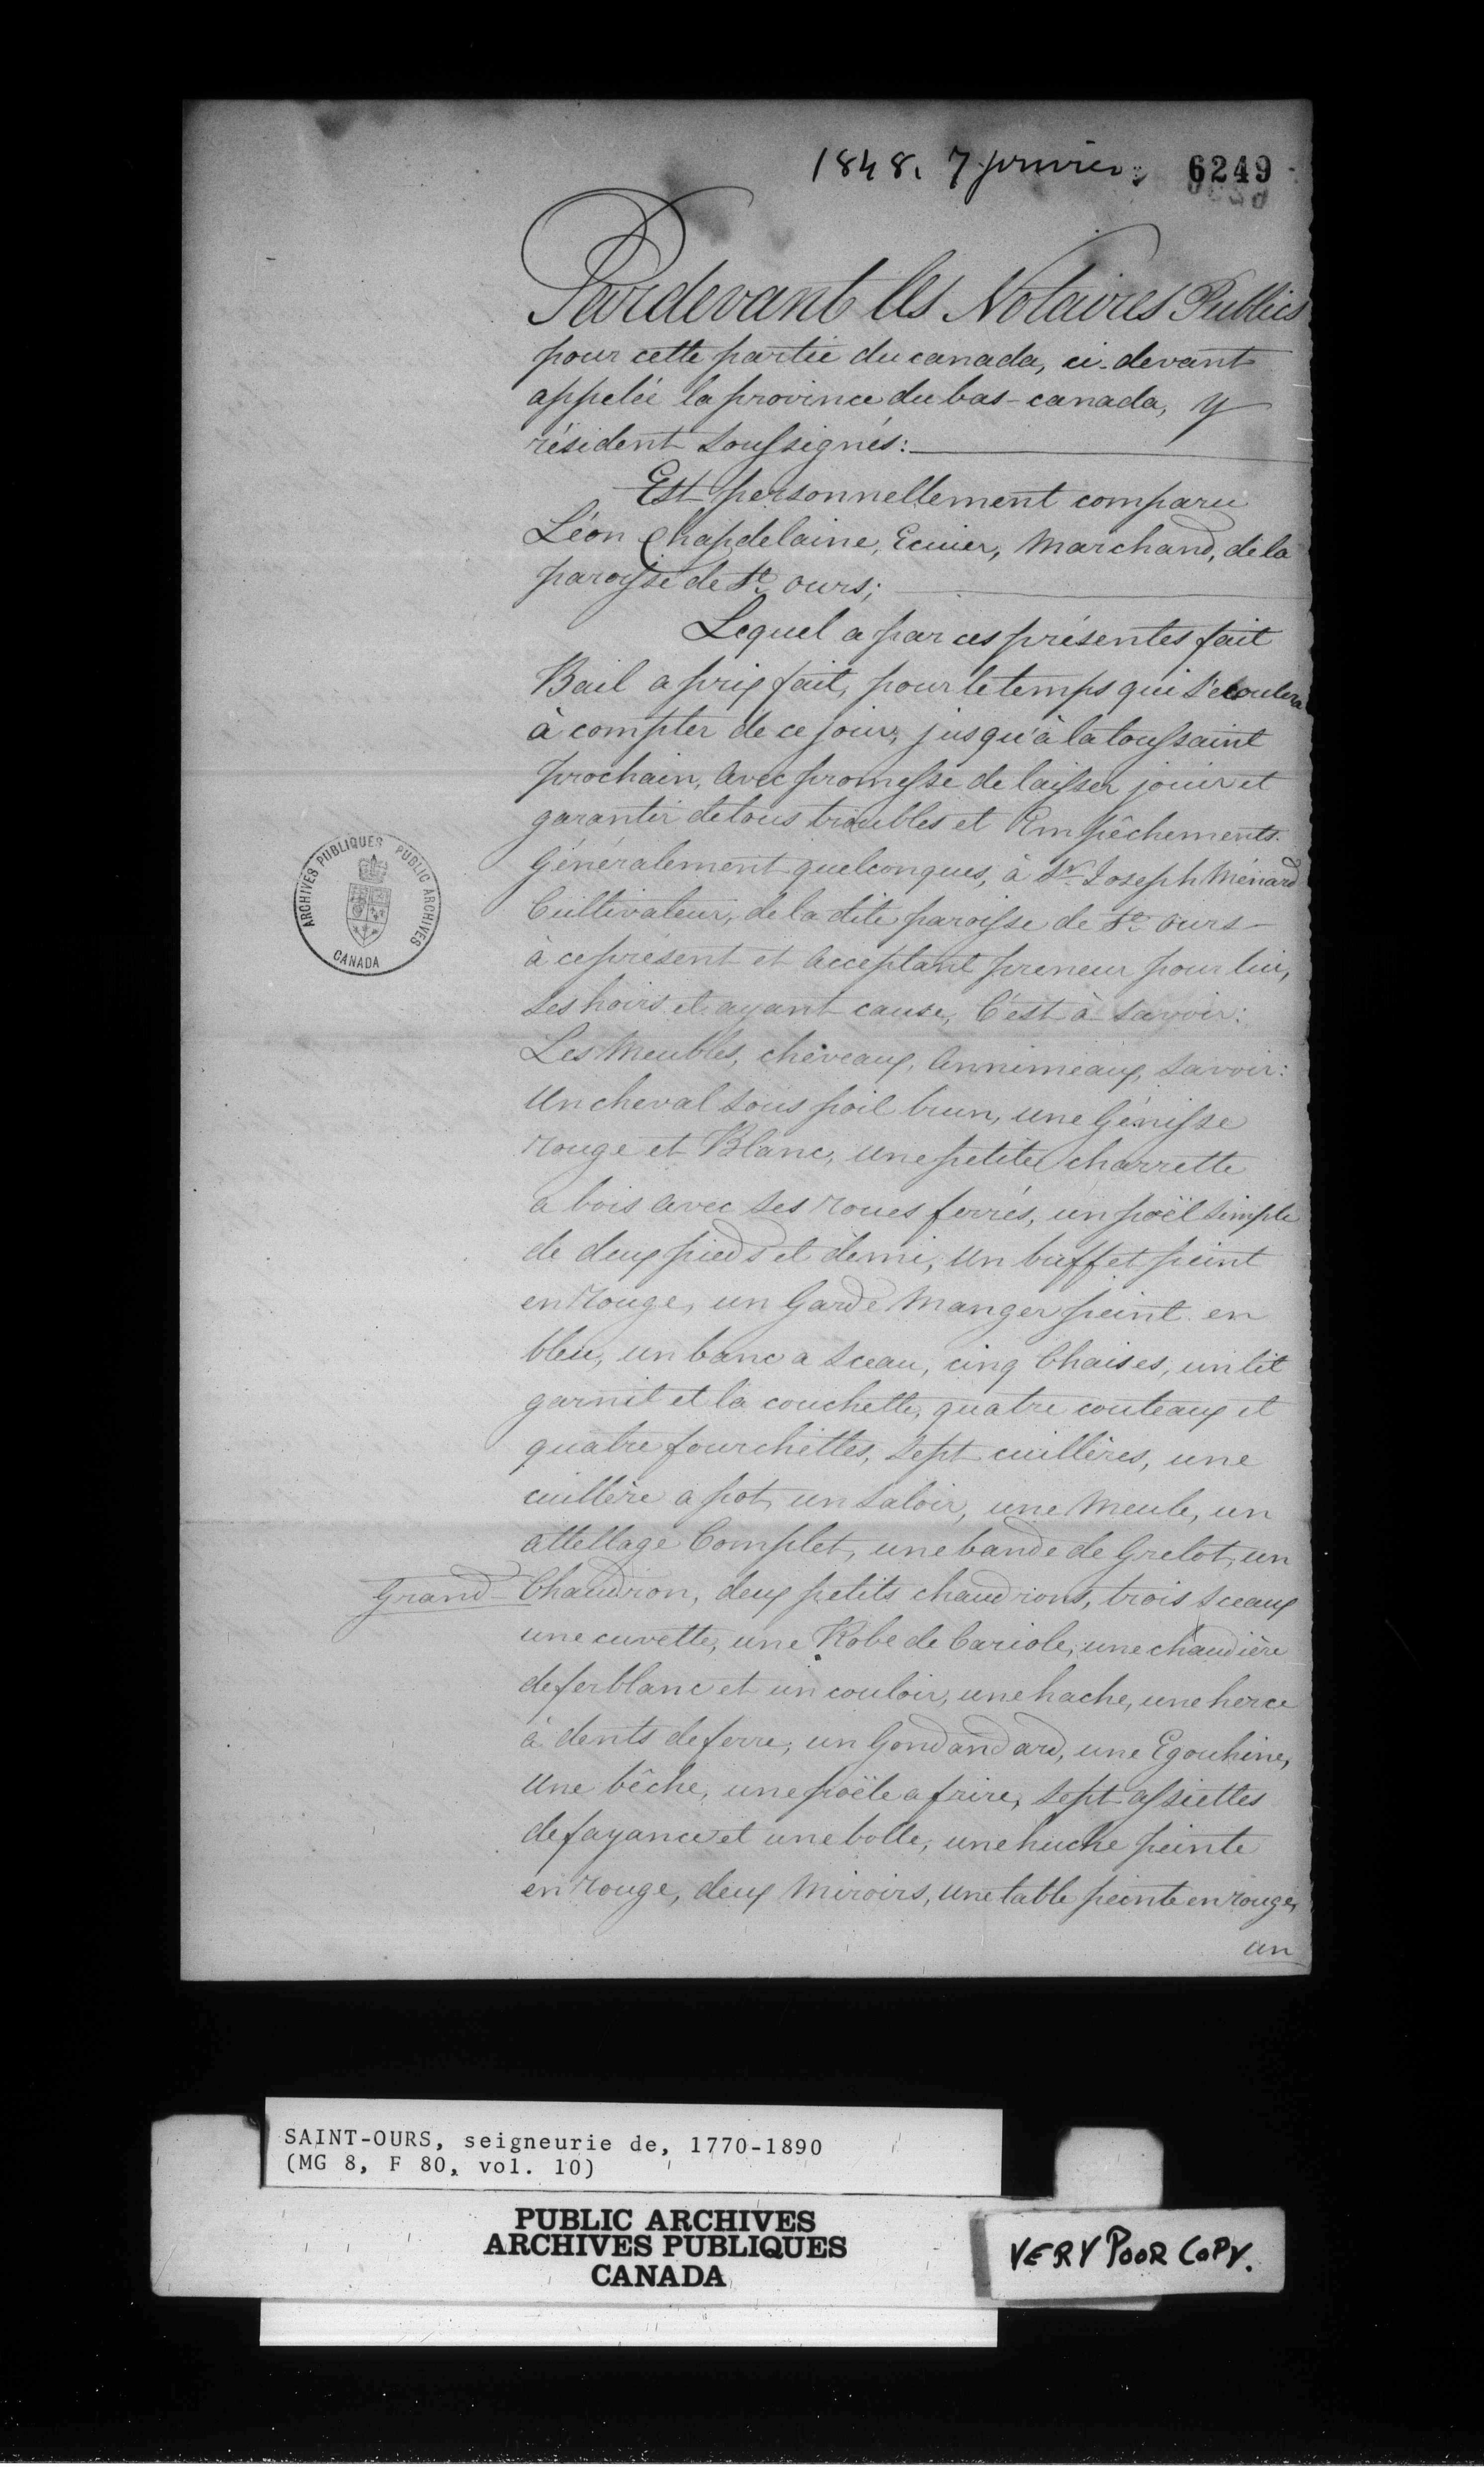 1848. 7 janvier. 6249
Pardevant les Notaires Publics
pour cette partie du canada, ci-devant
appelée la province du bas-canada, y
résident soussignés:
Est personnellement comparu
Léon Chapdelaine, Ecuier, Marchand, de la
paroisse de St. ours;
Lequel a par ces présentes fait
Bail a prix fait, pour le temps qui s'ecoulera
à compter de ce jour, jusqu'à la toussaint
prochain, avec promesse de laisser jouir et
garantir de tous troubles et Empêchements
Généralement quelconques, à Sr. Joseph Ménard
Cultivateur, de la dite paroisse de St. ours -
à ce présent et acceptant preneur pour lui,
ses hoirs et ayant cause, C'est à savoir:
Les Meubles, cheveaux, Annimeaux, savoir:
Un cheval sous poil brun, une Génisse
rouge et Blanc, une petite charrette
a bois avec ses roues ferrés, un poël simple
de deux pieds et demi, un buffet peint
en rouge, un Garde Manger peint en
bleu, un banc a sceau, cinq Chaises, un lit
garnit et la couchette, quatre couteaux et
quatre fourchettes, sept cuillères, une
cuillère a pot, un saloir, une Meule, un
attellage Complet, une bande de Grelot, un
Grand Chaudron, deux petits chaudrons, trois sceaux
une cuvette, une Robe de Cariole, une chaudière
de ferblanc et un couloir, une hache, une herce
à dents de ferre, un Gondandard, une Egouhine,
Une bêche, une poële a frire, sept assiettes
de fayance et une bolle, une huche peinte
en rouge, deux Miroirs, une table peinte en rouge,
un
ARCHIVES PUBLIQUES PUBLIC ARCHIVES
CANADA
SAINT-OURS, seigneurie de, 1770-1890
(MG 8, F 80, vol. 10)
PUBLIC ARCHIVES
ARCHIVES PUBLIQUES
CANADA
VERY POOR COPY.